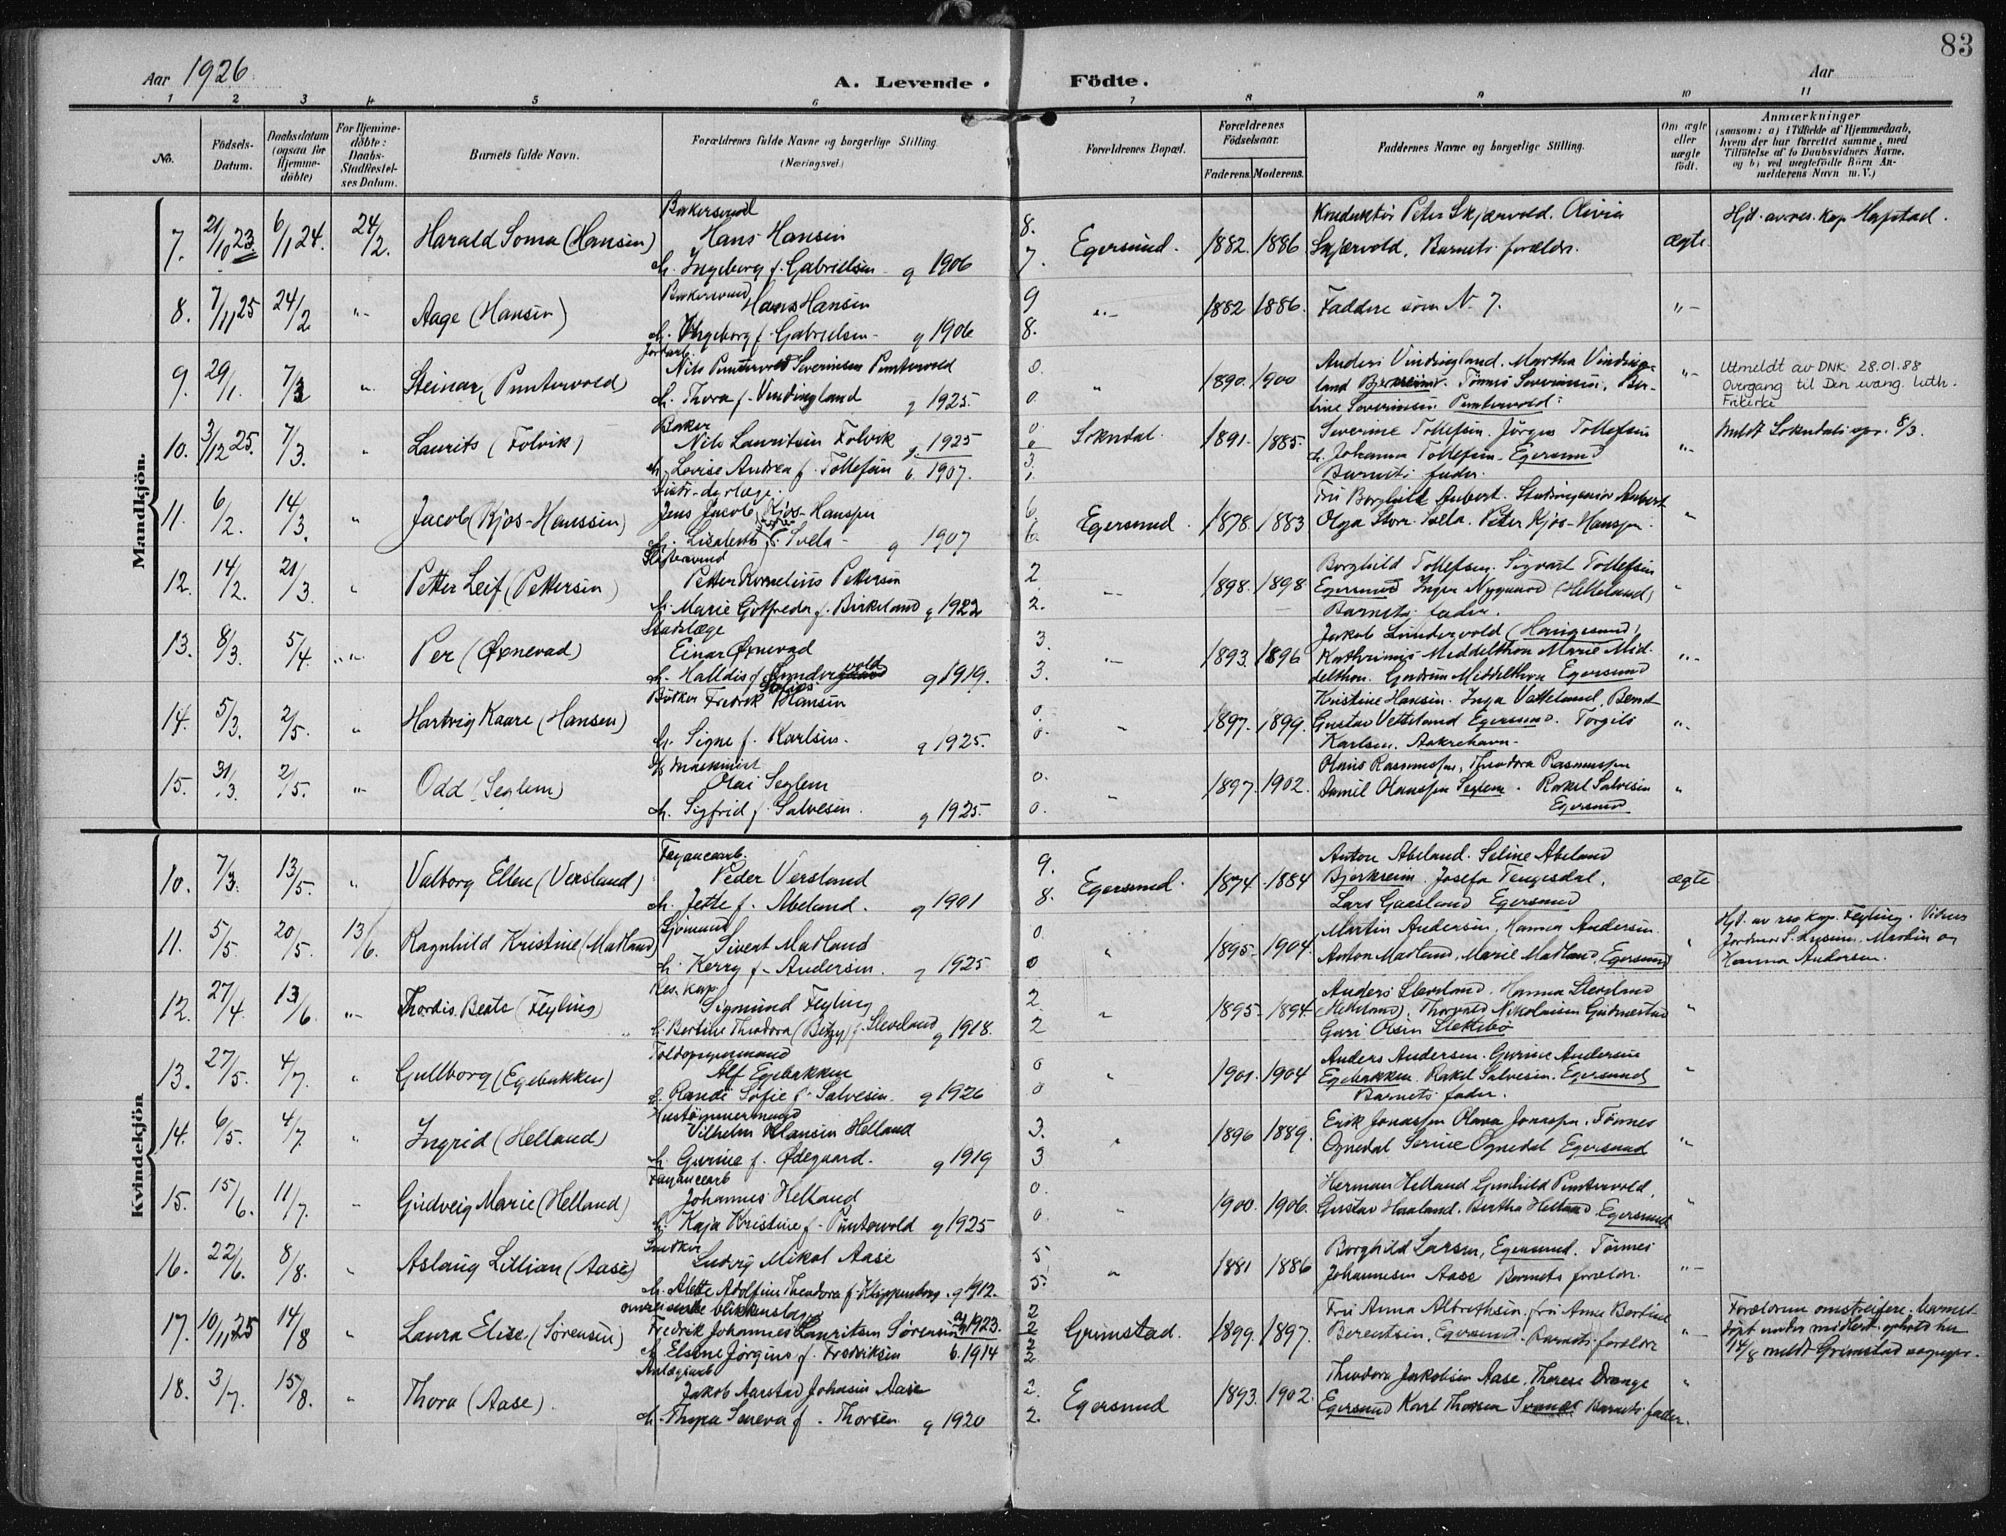 83
Aar 1926
A. Levende.
Födte.
Aar
1 2 3 4 5 6 7 8 9 10 11
No.
Födsels-
Datum.
Daabsdatum
(ogsaa for
Hjemme-
döbte)
For Hjemme-
döbte:
Daabs-
Stadfæstel-
ses Datum.
Barnets fulde Navn.
Forældrenes fulde Navne og borgerlige Stilling.
(Næringsvei.)
Forældrenes Bopæl.
Forældrenes
Födselsaar.
Faderens. Moderens.
Faddernes Navne og borgerlige Stilling.
Om ægte
eller
uægte
födt.
Anmærkninger
(saasom: a) i Tilfælde af Hjemmedaab,
hvem der har forrettet samme, med
Tilföielse af to Daabsvidners Navne,
og b) ved uegtefödte Börn An-
melderens Navn m. V.)
Mandkjön.
7. 21/10 23. 6/1 24. 24/2. Harald Soma (Hansen)
Hans Hansen
h. Ingeborg f. Gabrielsen g 1906
8. 7. Egersund. 1882. 1886
Konduktör Peter Skjærvold. Olivia
Skjærvold. Barnets foreldr.
ægte
Hjd. av res. kap. Hapstad.
8. 7/11 25 24/2 "- Aage (Hansen)
Hans Hansen
h. Ingeborg f. Gabrielsen g 1906
9 8. "- 1882 1886. Faddere som N. 7. "-
9. 29/1. 7/3 " Steinar (Puntervold)
Nils Puntervold Severinsen Puntervold
h. Thora f. Vindingland g 1925.
0. 0. " 1890. 1900
Anders Vindingland. Martha Vinding-
land Bjerkreim. Tönnes Severinsen. Ber-
tine Severinsen Puntervold.
"-
Utmeldt av DNK 28.01.88
Overgang til Den evang. luth.
Frikirke
10. 3/12 25. 7/3. " Laurits (Folvik)
Baker
Nils Lauritsen Folvik g 1925
h. Lovise Andrea f. Tollefsen b. 1907.
0. 0 3. 1. Sokndal. 1891. 1885.
Severine Tollefsen. Jörgen Tollefsen
h. Johanna Tollefsen. Egersund
Barnets fader.
"-
Meldt Sokndals spr. 8/3.
11. 6/2. 14/3. " Jacob (Kjos-Hanssen)
Jens Jacob Kjos-Hanssen
h. Lisabeth f. Svela - g 1907
6. 6. Egersund. 1878. 1883
Fru Borghild Aubert. Stadsingeniör Aubert
Olga Storr Svela. Peter Kjos-Hanssen.
"
12. 14/2. 21/3. " Petter Leif (Pettersen)
Petter Kornelius Pettersen
h. Marie Gotfreda f. Birkeland g 1922
2. 2. "- 1898. 1898
Borghild Tollefsen. Sigvart Tollefsen
Egersund Inger Nygaard (Helleland)
Barnets fader.
"
13. 8/3. 5/4. "-"- Per (Øxnevad)
Stadslæge
Einar Øxnevad
h. Halldis f. g 1919.
3. 3. "- 1893. 1896
Jakob Lundervold (Haugesund)
Kathrinus Middelthon Marie Mid-
delthon. Gudrun Middelthon Egersund
"-
14. 5/3. 2/5. " Hartvig Kaare (Hansen)
Bödker Fredrik Hansen
h. Signe f. Karlsen. g 1925.
0. 0. " 1897. 1899.
Kristine Hansen. Inga Vatteland. Bernt
Gustav Vetteland Egersund. Torgils
Karlsen. Aakrehavn.
"
15. 31/3. 2/5. "- Odd (Seglem)
Maskinist
Olai Seglem
h. Sigfrid f. Salvesen. g 1925.
0. 0. " 1897. 1902.
Olaus Rasmussen, Theodora Rasmussen
Daniel Olaussen Seglem. Rakel Salvesen
Egersund
"
Kvindekjön
10. 7/3. 13/5. " Valborg Ellen (Versland)
Fayancearb.
Peder Versland
h. Jette f. Abeland. g 1901
9. 8. Egersund. 1874. 1884
Anton Abeland. Seline Abeland
Bjerkreim. Josefa Tengesdal.
Lars Gaasland Egersund
ægte
11. 5/5. 20/5. 13/6. Ragnhild Kristine (Madland)
Sjömand
Sivert Madland
h. Kerry f. Andersen. g 1925
0. 0 " 1895. 1904.
Martin Andersen, Hanna Andersen.
Anton Madland. Marie Madland, Egersund
"
Hjd. av res kap. Feyling. Vidner
Jordmor S. Martin og
Hanna Andersen.
12. 27/4. 13/6. "- Thordis Beate (Feyling)
Res. kap.
Sigmund Feyling
h. Bertine Theodora (Bitzy) f. Sleveland g 1918.
2. 2 " 1895. 1894
Anders Sleveland. Hanna Sleveland
(Helleland), Thorvald Nikolaisen Gudmestad
Guri Olsen Slettebö
"
13. 27/5. 4/7. " Gullborg (Egebakken)
Toldopsynsmand
Alf Egebakken
h. Randi Sofie f. Salvesen. g 1926
0 0 " 1901. 1904
Anders Andersen. Gurine Andersen
Egebakken. Rakel Salvesen. Egersund
Barnets fader.
"
14. 6/5. 4/7. " Ingrid (Helland)
Hustömmermand
Vilhelm Hansen Helland
h. Gurine f. Ødegaard. g 1919
3. 3 " 1896 1889.
Erik Jonassen Olava Jonassen. Tönnes
Ognedal Serine Ognedal Egersund
"
15. 15/6. 11/7. " Gudveig Marie (Helland)
Fayancearb
Johannes Helland
h. Kaja Kristine f. Puntervold g 1925
0. 0. " 1900. 1906.
Herman Helland Gunhild Puntervold.
Gustav Haaland. Bertha Helland Egersund
"
16. 22/6. 8/8. " Aslaug Lillian (Aase)
Snedker
Ludvig Mikal Aase
h. Alette Adolfine Theodora f. Kleppenberg. g 1912.
5 5. " 1881 1886
Borghild Larsen, Egersund. Tönnes
Johannesen Aase Barnets foreldr.
"-
17. 10/11 25 14/8 " Laura Elise (Sørensen)
omreisende blikkenslager
Fredrik Johannes Lauritsen Sørensen g 1923.
h. Elvine Jörgine f. Fredriksen b. 1914
2 2 2 2 Grimstad. 1899. 1897.
Fru Anna Albrethsen, fru Anna Bertine
Berentsen, Egersund. Barnets foreldr
"-
Forældrene omstreifere. barnet
döpt under midlert. ophold her
14/8 meldt Grimstad sogepr.
18. 3/7. 15/8. " Thora (Aase).
Anlægsarb
Jakob Aarstad Johnsen Aase
h. Thora Seneva f. Thorsen g 1920
2. 2. Egersund 1893. 1902.
Theodora Jakobsen Aase. Therese Drange
Egersund Karl Thorsen Svanes Barnets fader.
"